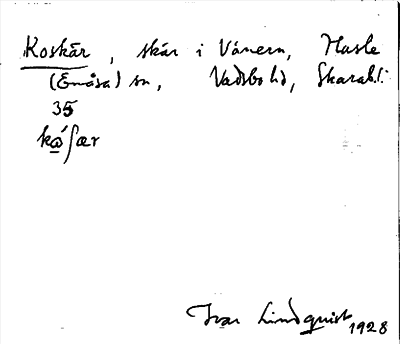 Koskär, skär i Vänern, Hasle
(Enåsa) sn, Vadsbo hd, Skarab.l.
35
kó̱ʃær
Ivar Lindquist 1928